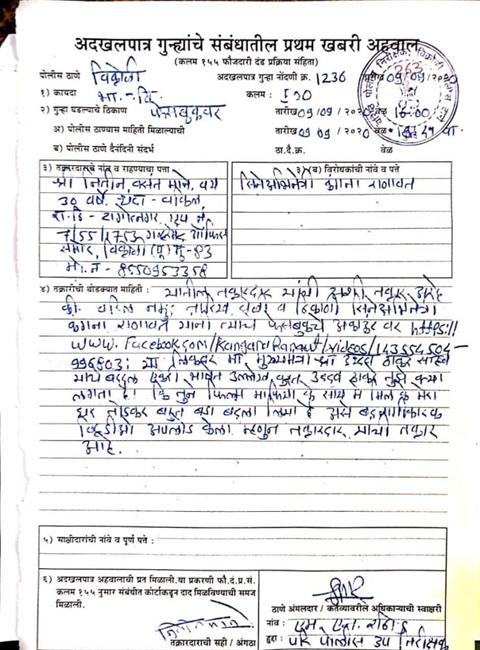 अदखलपात्र गुन्ह्यांचे संबंधातील प्रथम खबरी अहवाल
(कलम १५५ फौजदारी दंड प्रक्रिया संहिता)
पोलीस ठाणे विक्रोळी अदखलपात्र गुन्हा नोंदणी क्र. 1236 09/09/२०२०
१) कायदा भा.दं.वि. कलम : 500
२) गुन्हा घडल्याचे ठिकाण फेसबुकवर तारीख 09/09/२०२० वेळ 16:00
अ) पोलीस ठाण्यास माहिती मिळाल्याची तारीख 09/09/२०२०
ब) पोलीस ठाणे दैनंदिनी संदर्भ ठा.दै.क्र. वेळ
३) तक्रारदारचे नांव व राहण्याचा पत्ता
३) (ब) विरोधकांची नांवे व पत्ते
श्री नितीन वसंत माने, वय
सिनेअभिनेत्री कंगना राणावत
30 वर्षे, धंदा - वकिल,
रा. ठि - टागोरनगर,
7/55/1753,
विक्रोळी (पू) मुं-83
मो.नं - 8550953358
४) तक्रारीची थोडक्यात माहिती : यातील तक्रारदार यांची अशी तक्रार आहे
की वरिल नमुद तारीख वेळी व ठिकाणी सिनेअभिनेत्री
कंगना राणावत यांनी त्यांचे फेसबुकचे अकाउंट वर https://
www.facebook.com/KanganaRanaut/videos/143554504-
996803; मा. मुख्यमंत्री श्री उध्दव ठाकरे साहेब
यांचे बद्दल एकेरी भाषेत उल्लेख करुन उध्दव ठाकरे तुझे क्या
लगता है। कि तुने फिल्म माफिया के साथ मे मिल के मेरा
घर तोडकर बहुत बडा बदला लिया है असे बदनामीकारक
व्हिडीओ अपलोड केला. म्हणुन तक्रारदार यांची तक्रार
आहे.
५) साक्षीदारांची नांवे व पूर्ण पत्ते :
६) अदखलपात्र अहवालाची प्रत मिळाली.या प्रकरणी फौ.दं.प्र.सं.
कलम १५५ नुसार संबंधीत कोर्टाकडून दाद मिळविण्याची समज
मिळाली.
ठाणे अंमलदार / कर्तव्यावरील अधिकाऱ्याची स्वाक्षरी
नांव : एम. एल. राठोड
तक्रारदाराची सही / अंगठा
हुद्दा : परि पोलीस उप निरीक्षक